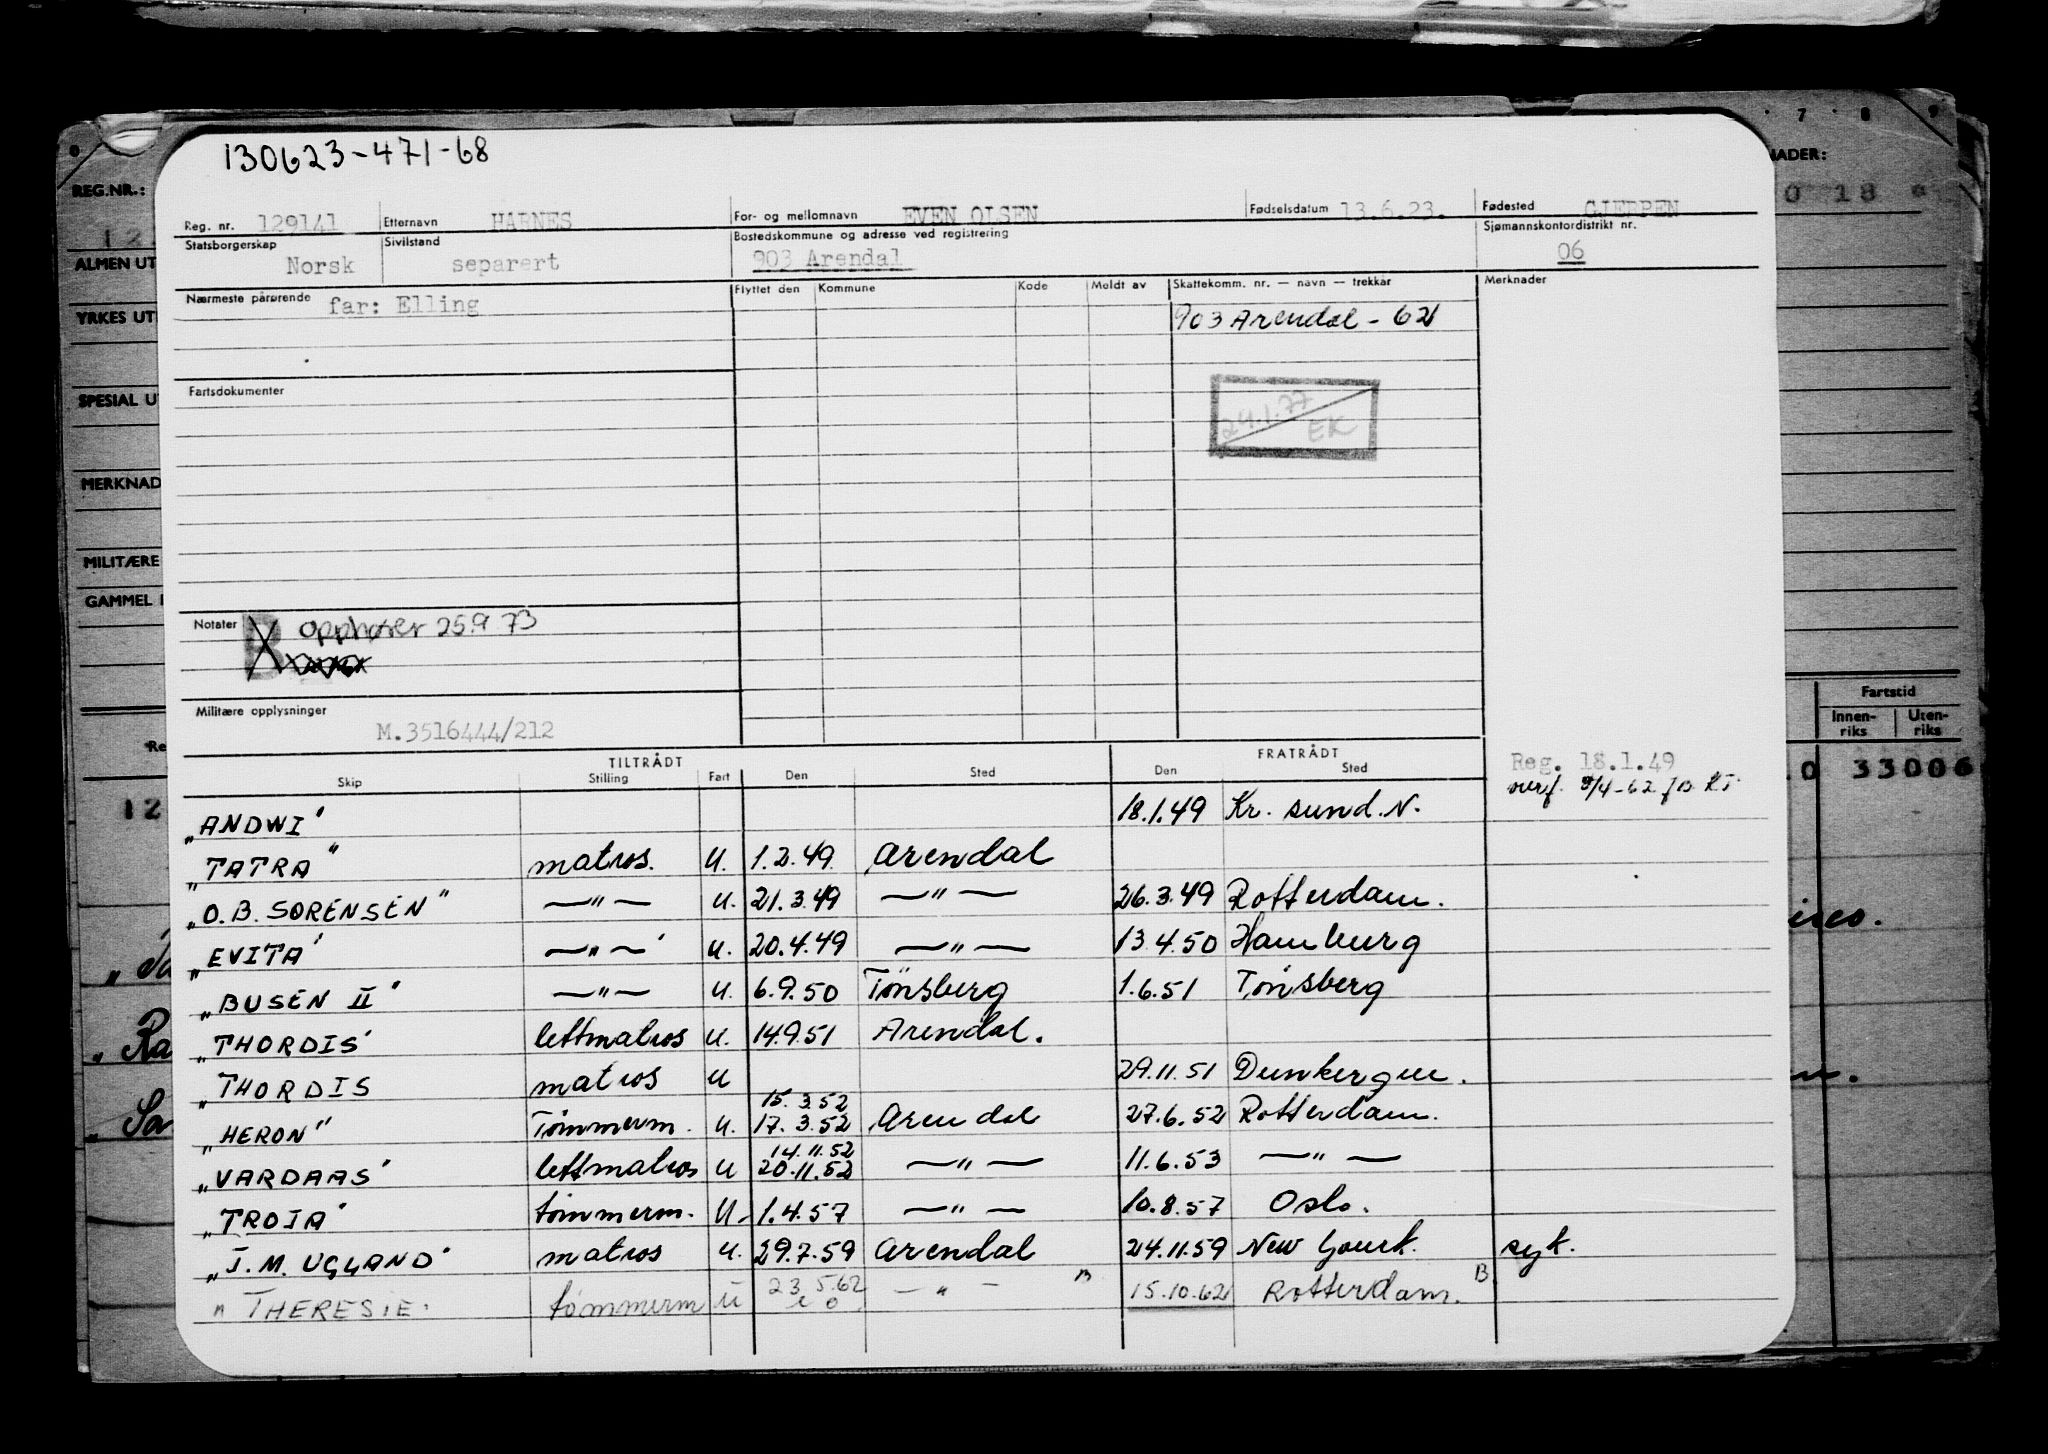 130623-471-68
7 8 9
REG.NR.:
NADER:
0 18
Reg. nr. 129141 Etternavn HARNES For- og mellomnavn EVEN OLSEN Fødselsdatum 13.6.23. Fødested GJERPEN
12
Statsborgerskap Norsk Sivilstand separert Bostedskommune og adresse ved registrering 903 Arendal Sjømannskontordistrikt nr. 06
ALMEN UT
Nærmeste pårørende far: Elling Flyttet den Kommune Kode Meldt av Skattekomm. nr. — navn — trekkår Merknader
YRKES UT
903 Arendal - 62
Fartsdokumenter
SPESIAL U
24.1.77
EK
MERKNAD
MILITÆRE
GAMMEL
Notater B opphører 25.9.73
Militære opplysninger M.3516444/212
Fartstid
Innen-riks Uten-riks
Re
TILTRÅDT FRATRÅDT
Skip Stilling Fart Den Sted Den Sted
Reg. 18.1.49
0 33006
12
„ANDWI" 18.1.49 Kr. sund. N.
„TATRA" matros. u. 1.2.49. Arendal
„O.B. SØRENSEN" —"— u. 21.3.49 —"— 26.3.49 Rotterdam.
„EVITA" —"— u. 20.4.49 —"— 13.4.50 Hamburg
„BUSEN II" —"— u. 6.9.50 Tønsberg 1.6.51 Tønsberg
„THORDIS" lettmatros u. 14.9.51 Arendal.
„THORDIS matros u 29.11.51 Dunkerque.
15.3.52
„HERON" Tømmerm. u. 17.3.52 Arendal 27.6.52 Rotterdam.
14.11.52
„VARDAAS" lettmatros u 20.11.52 —"— 11.6.53 —"—
„TROJA" tømmerm. u. 1.4.57 —"— 10.8.57 Oslo.
„J.M. UGLAND" matros u. 29.7.59 Arendal 24.11.59 New Yourk. syk.
„THERESIE. tømmerm u 23.5.62 —"— B 15.10.62 Rotterdam. B